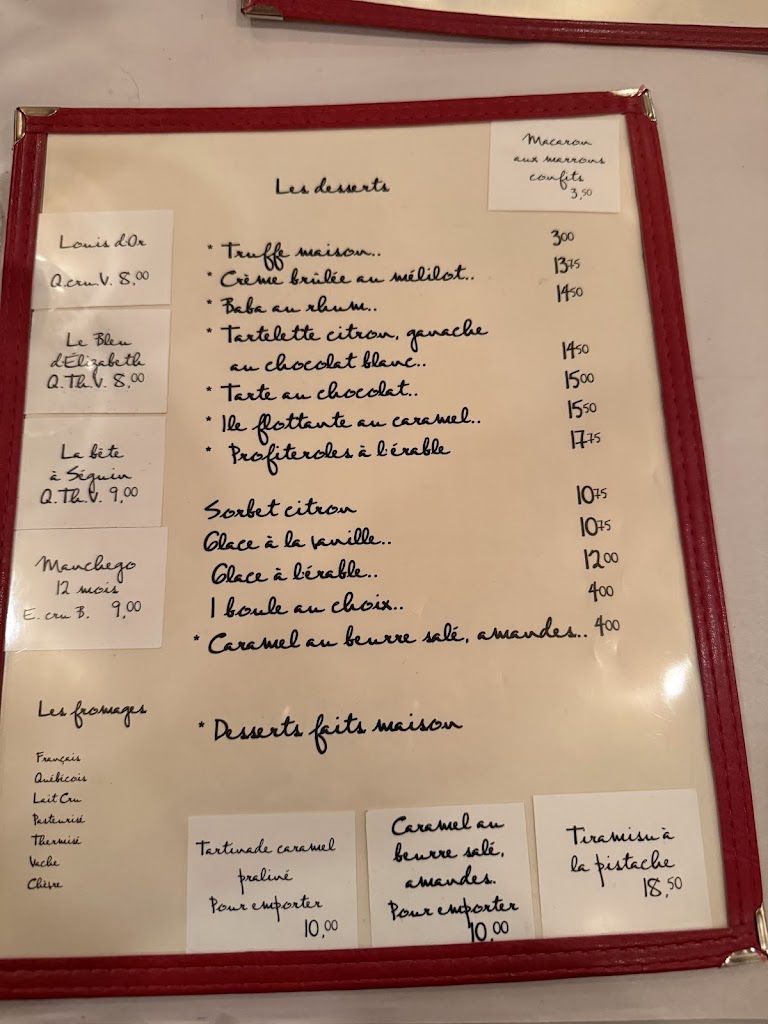 Macaron
aux marrons
confits
3,50
Les desserts
Louis d'Or
Q.cru.V. 8,00
Le Bleu
d'Élizabeth
Q.Th.V. 8,00
La bête
à Séguin
Q.Th.V. 9,00
Manchego
12 mois
E. cru B. 9,00
* Truffe maison.. 300
* Crème brûlée au mélilot.. 1375
* Baba au rhum.. 1450
* Tartelette citron, ganache
au chocolat blanc.. 1450
* Tarte au chocolat.. 1500
* Ile flottante au caramel.. 1550
* Profiteroles à l'érable 1775
Sorbet citron 1075
Glace à la vanille.. 1075
Glace à l'érable.. 1200
1 boule au choix.. 400
* Caramel au beurre salé, amandes.. 400
* Desserts faits maison
Les fromages
Français
Québécois
Lait Cru
Pasteurisé
Thermisé
Vache
Chèvre
Tartinade caramel
praliné
Pour emporter
10,00
Caramel au
beurre salé,
amandes.
Pour emporter
10,00
Tiramisu à
la pistache
18,50